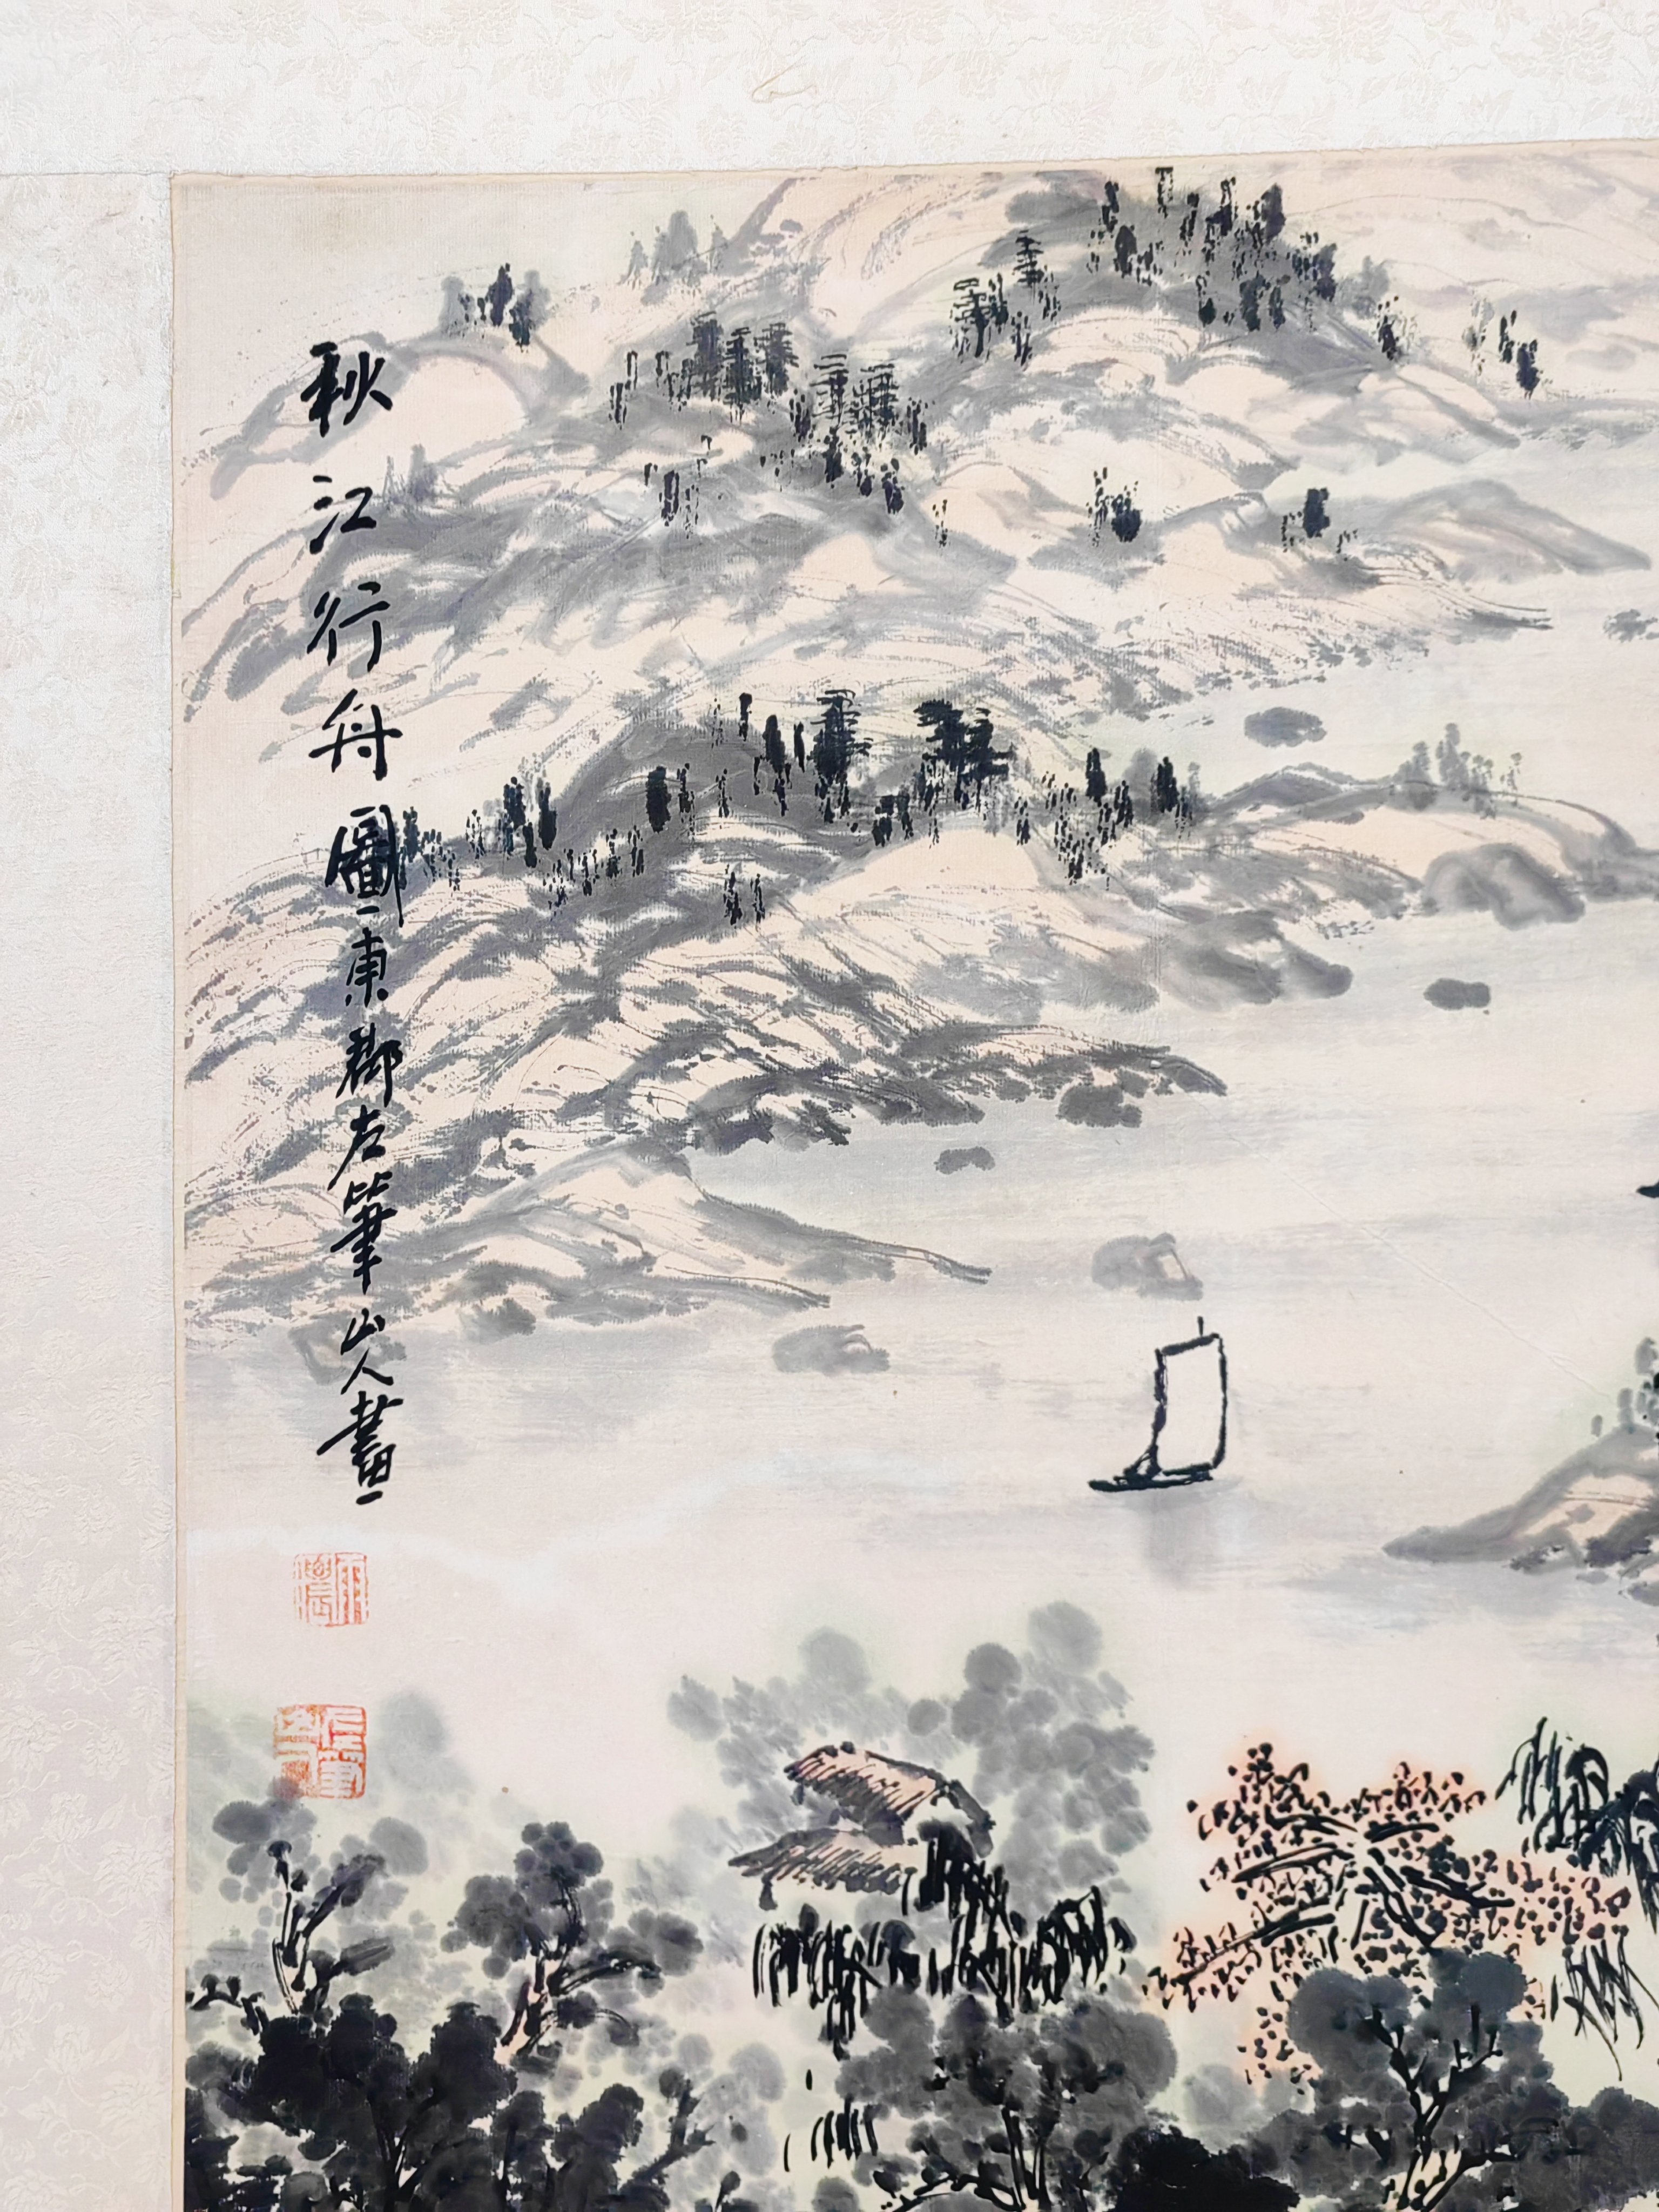 秋江行舟圖東郡左筆山人畫